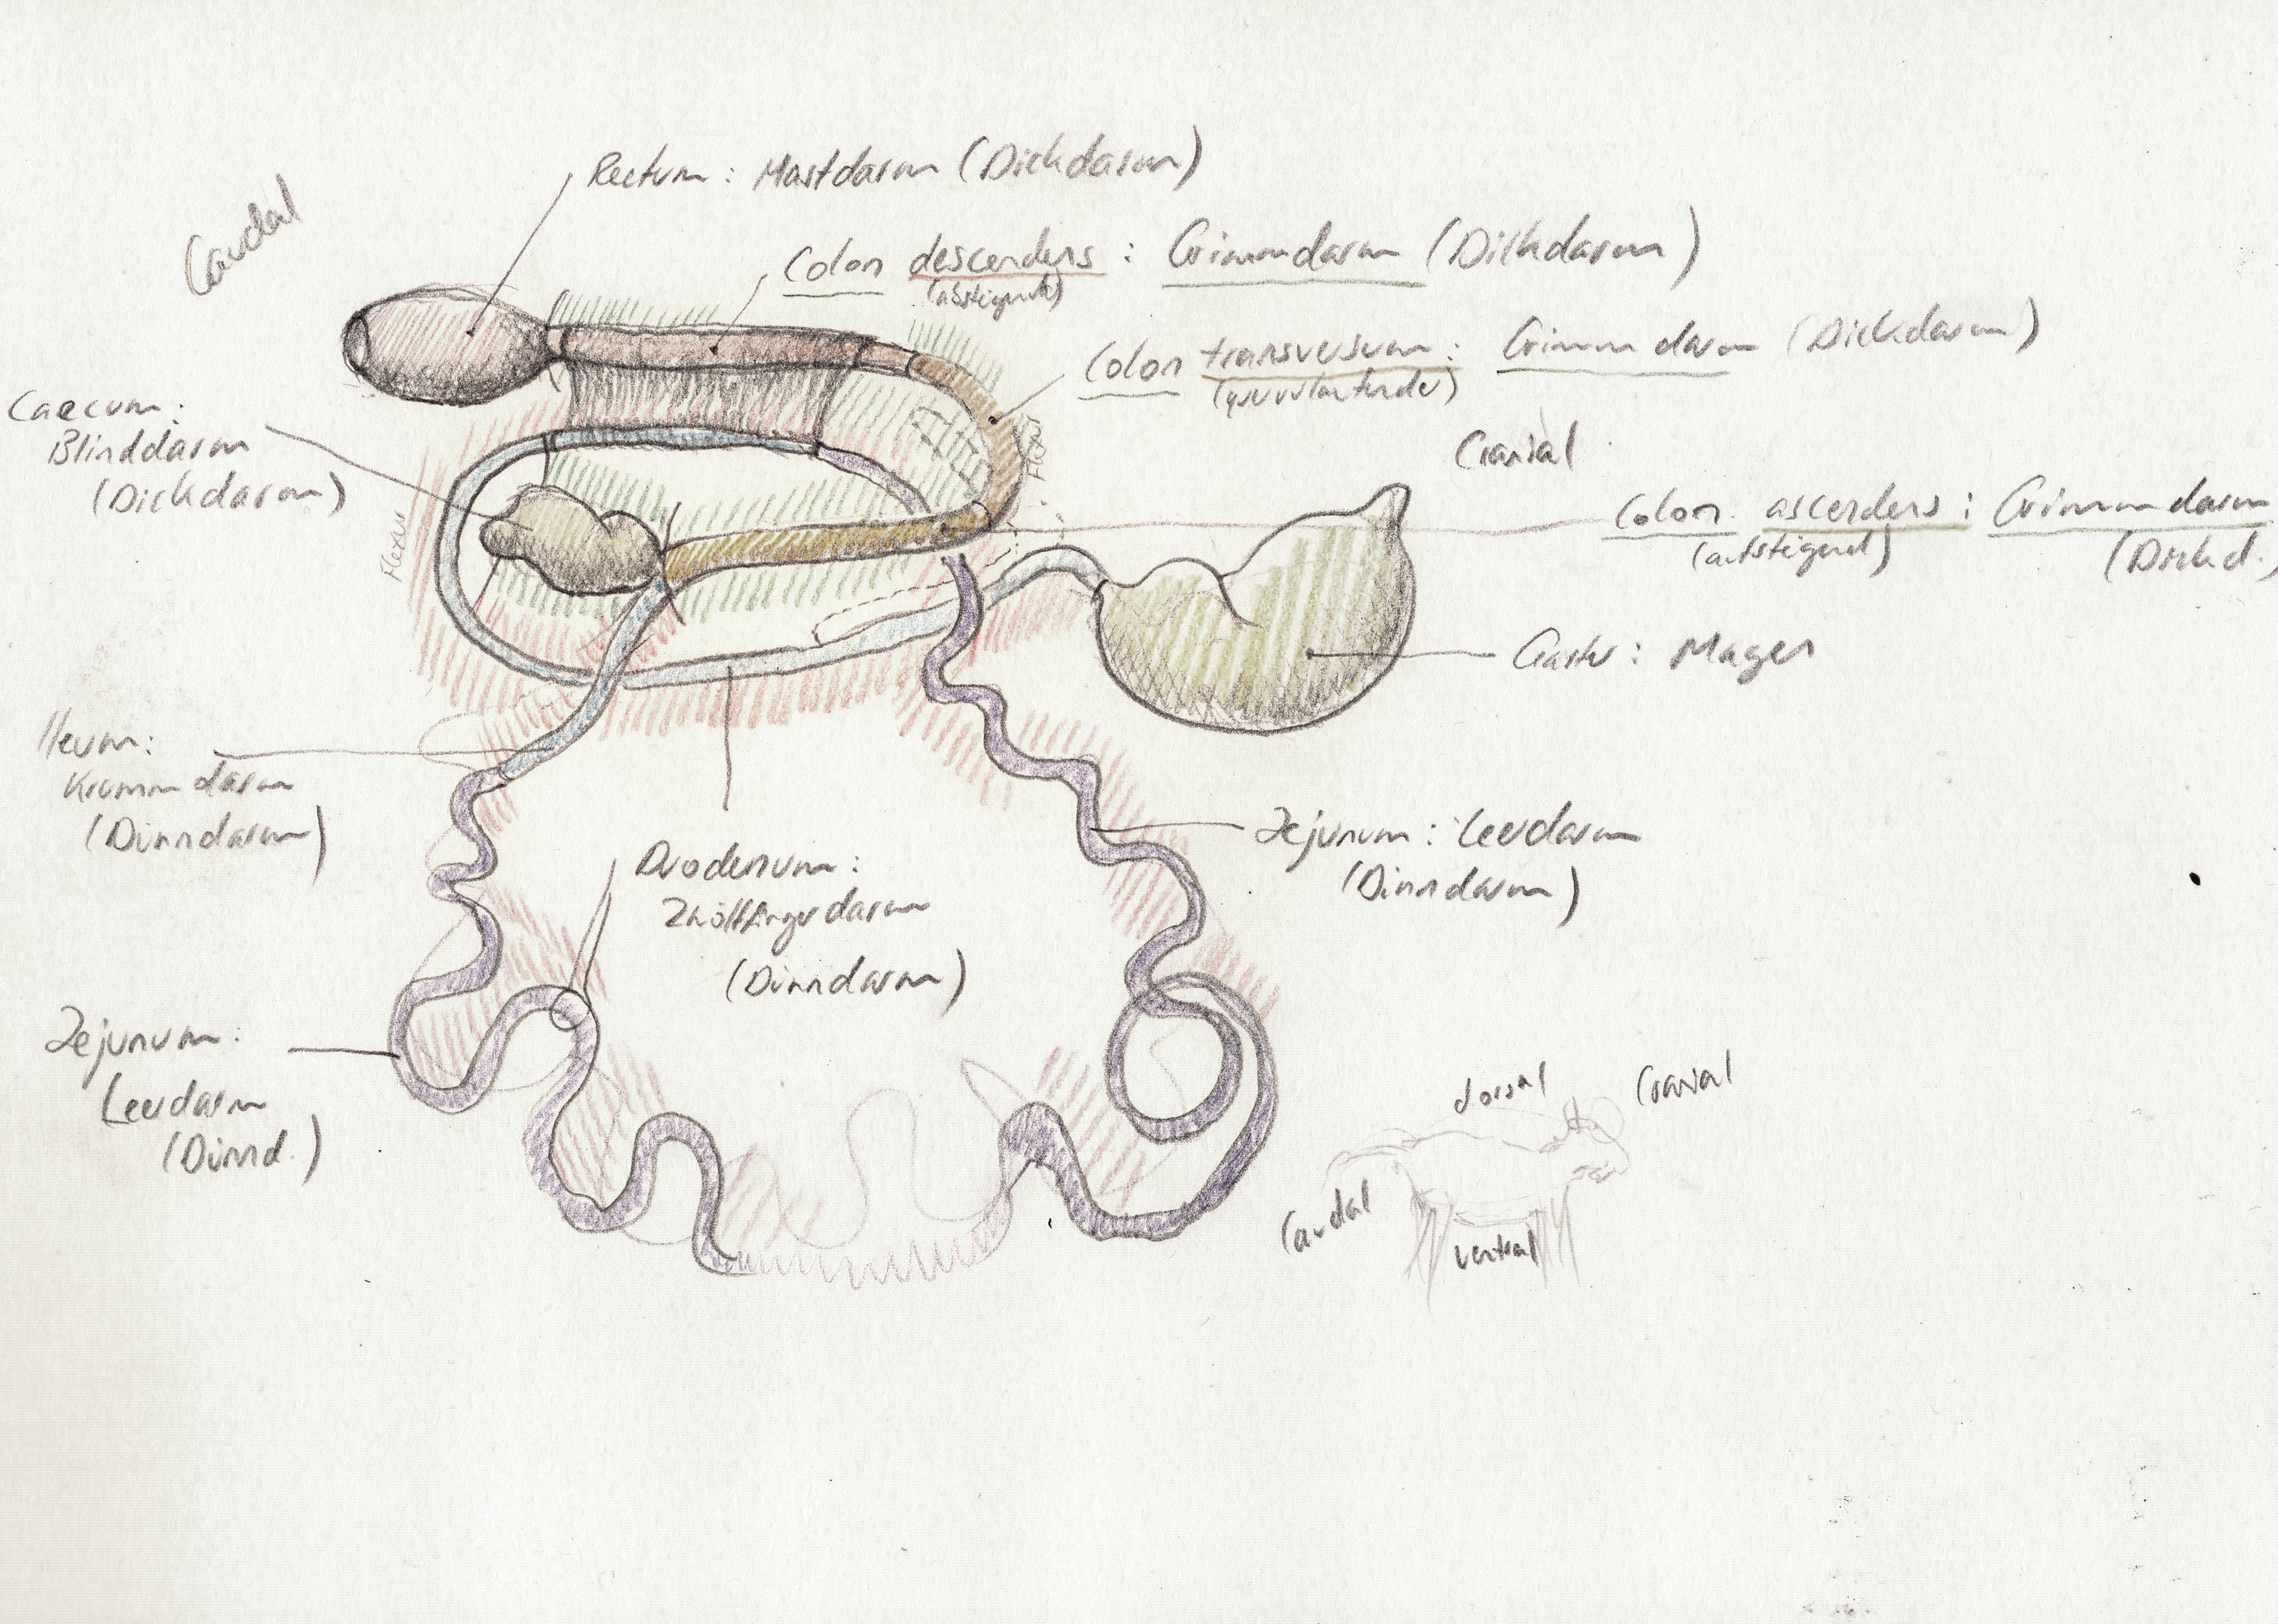 Caudal
Rectum: Mastdarm (Dickdarm)
Colon descendens: Grimmdarm (Dickdarm)
(absteigende)
Colon transversum: Grimmdarm (Dickdarm)
(querverlaufender)
Caecum:
Blinddarm
(Dickdarm)
Flexur
Flexur
Cranial
Colon ascendens: Grimmdarm
(aufsteigend) (Dickd.)
Gaster: Magen
Ileum:
Krummdarm
(Dünndarm)
Jejunum: Leerdarm
(Dünndarm)
Duodenum:
Zwölffingerdarm
(Dünndarm)
Jejunum:
Leerdarm
(Dünnd.)
dorsal
Cranial
Caudal
ventral